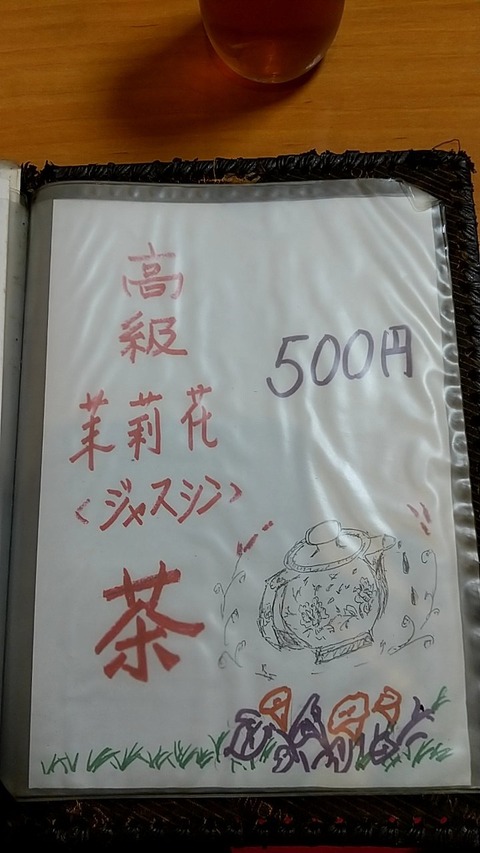 高
級
茉莉花
<ジャスシン>
茶
500円